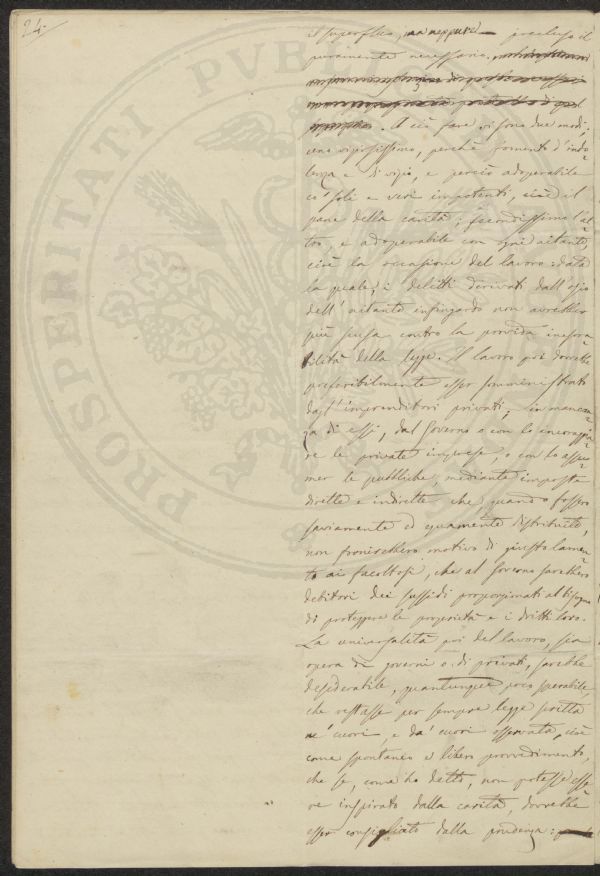 24.
il superfluo, ma neppure precluso il
puramente necessario.
. A ciò fare vi sono due modi;
uno viziosissimo, perchè fomento d'indo-
lenza e di vizio, e perciò adoperabile
co' soli e veri impotenti, cioè il
pane della carità; fecondissimo l'al-
tro, e adoperabile con ogni aitante,
cioè la occasione del lavoro: data
la quale, i delitti derivati dall'ozio
dell'aitante infingardo non avrebber
più scusa contro la provvida inesora-
bilità della legge. Il lavoro poi dovrebbe
preferibilmente esser somministrato
dagl'imprenditori privati, in mancan-
za di essi, dal Governo o con lo incoraggia-
re le private imprese, o con lo assu-
mer le pubbliche, mediante imposte
dirette e indirette, che quando fossero
saviamente ed equamente distribuite,
non fornirebbero motivo di giusto lamen-
to ai facoltosi, che al Governo sarebbero
debitori dei sussidi proporzionati al bisogno
di protegger le proprietà e i dritti loro.
La universalità poi del lavoro, sia
opera de' governi o di privati, sarebbe
desiderabile, quantunque poco sperabile,
che restasse per sempre legge scritta
ne' cuori, e da' cuori osservata, cioè
come spontaneo e libero provvedimento,
che se, come ho detto, non potesse esse-
re inspirato dalla carità, dovrebbe
esser consigliato dalla prudenza:
PROSPERITATI PUBL